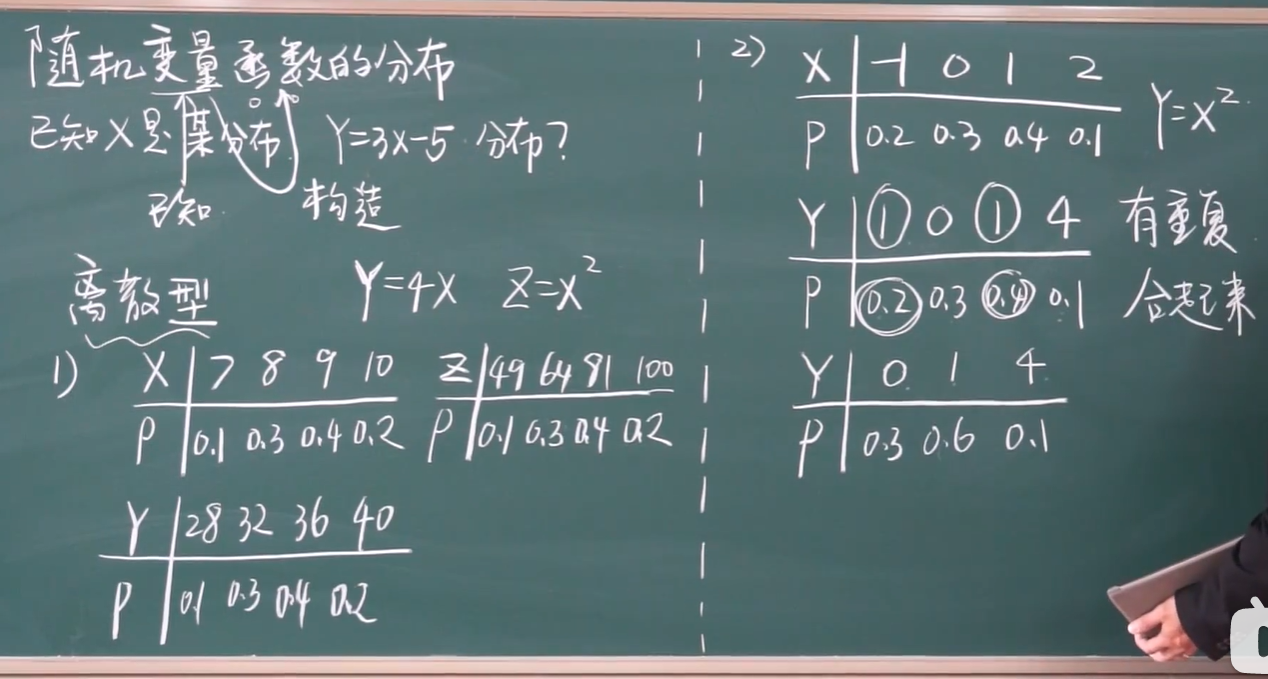 随机变量函数的分布
已知X是某分布 Y=3X-5 分布?
已知 构造
离散型 Y=4X Z=X²
1) X 7 8 9 10
P 0.1 0.3 0.4 0.2
Z 49 64 81 100
P 0.1 0.3 0.4 0.2
Y 28 32 36 40
P 0.1 0.3 0.4 0.2
2) X -1 0 1 2
P 0.2 0.3 0.4 0.1
Y=X²
Y ① 0 ① 4 有重复
P 0.2 0.3 0.4 0.1 合起来
Y 0 1 4
P 0.3 0.6 0.1